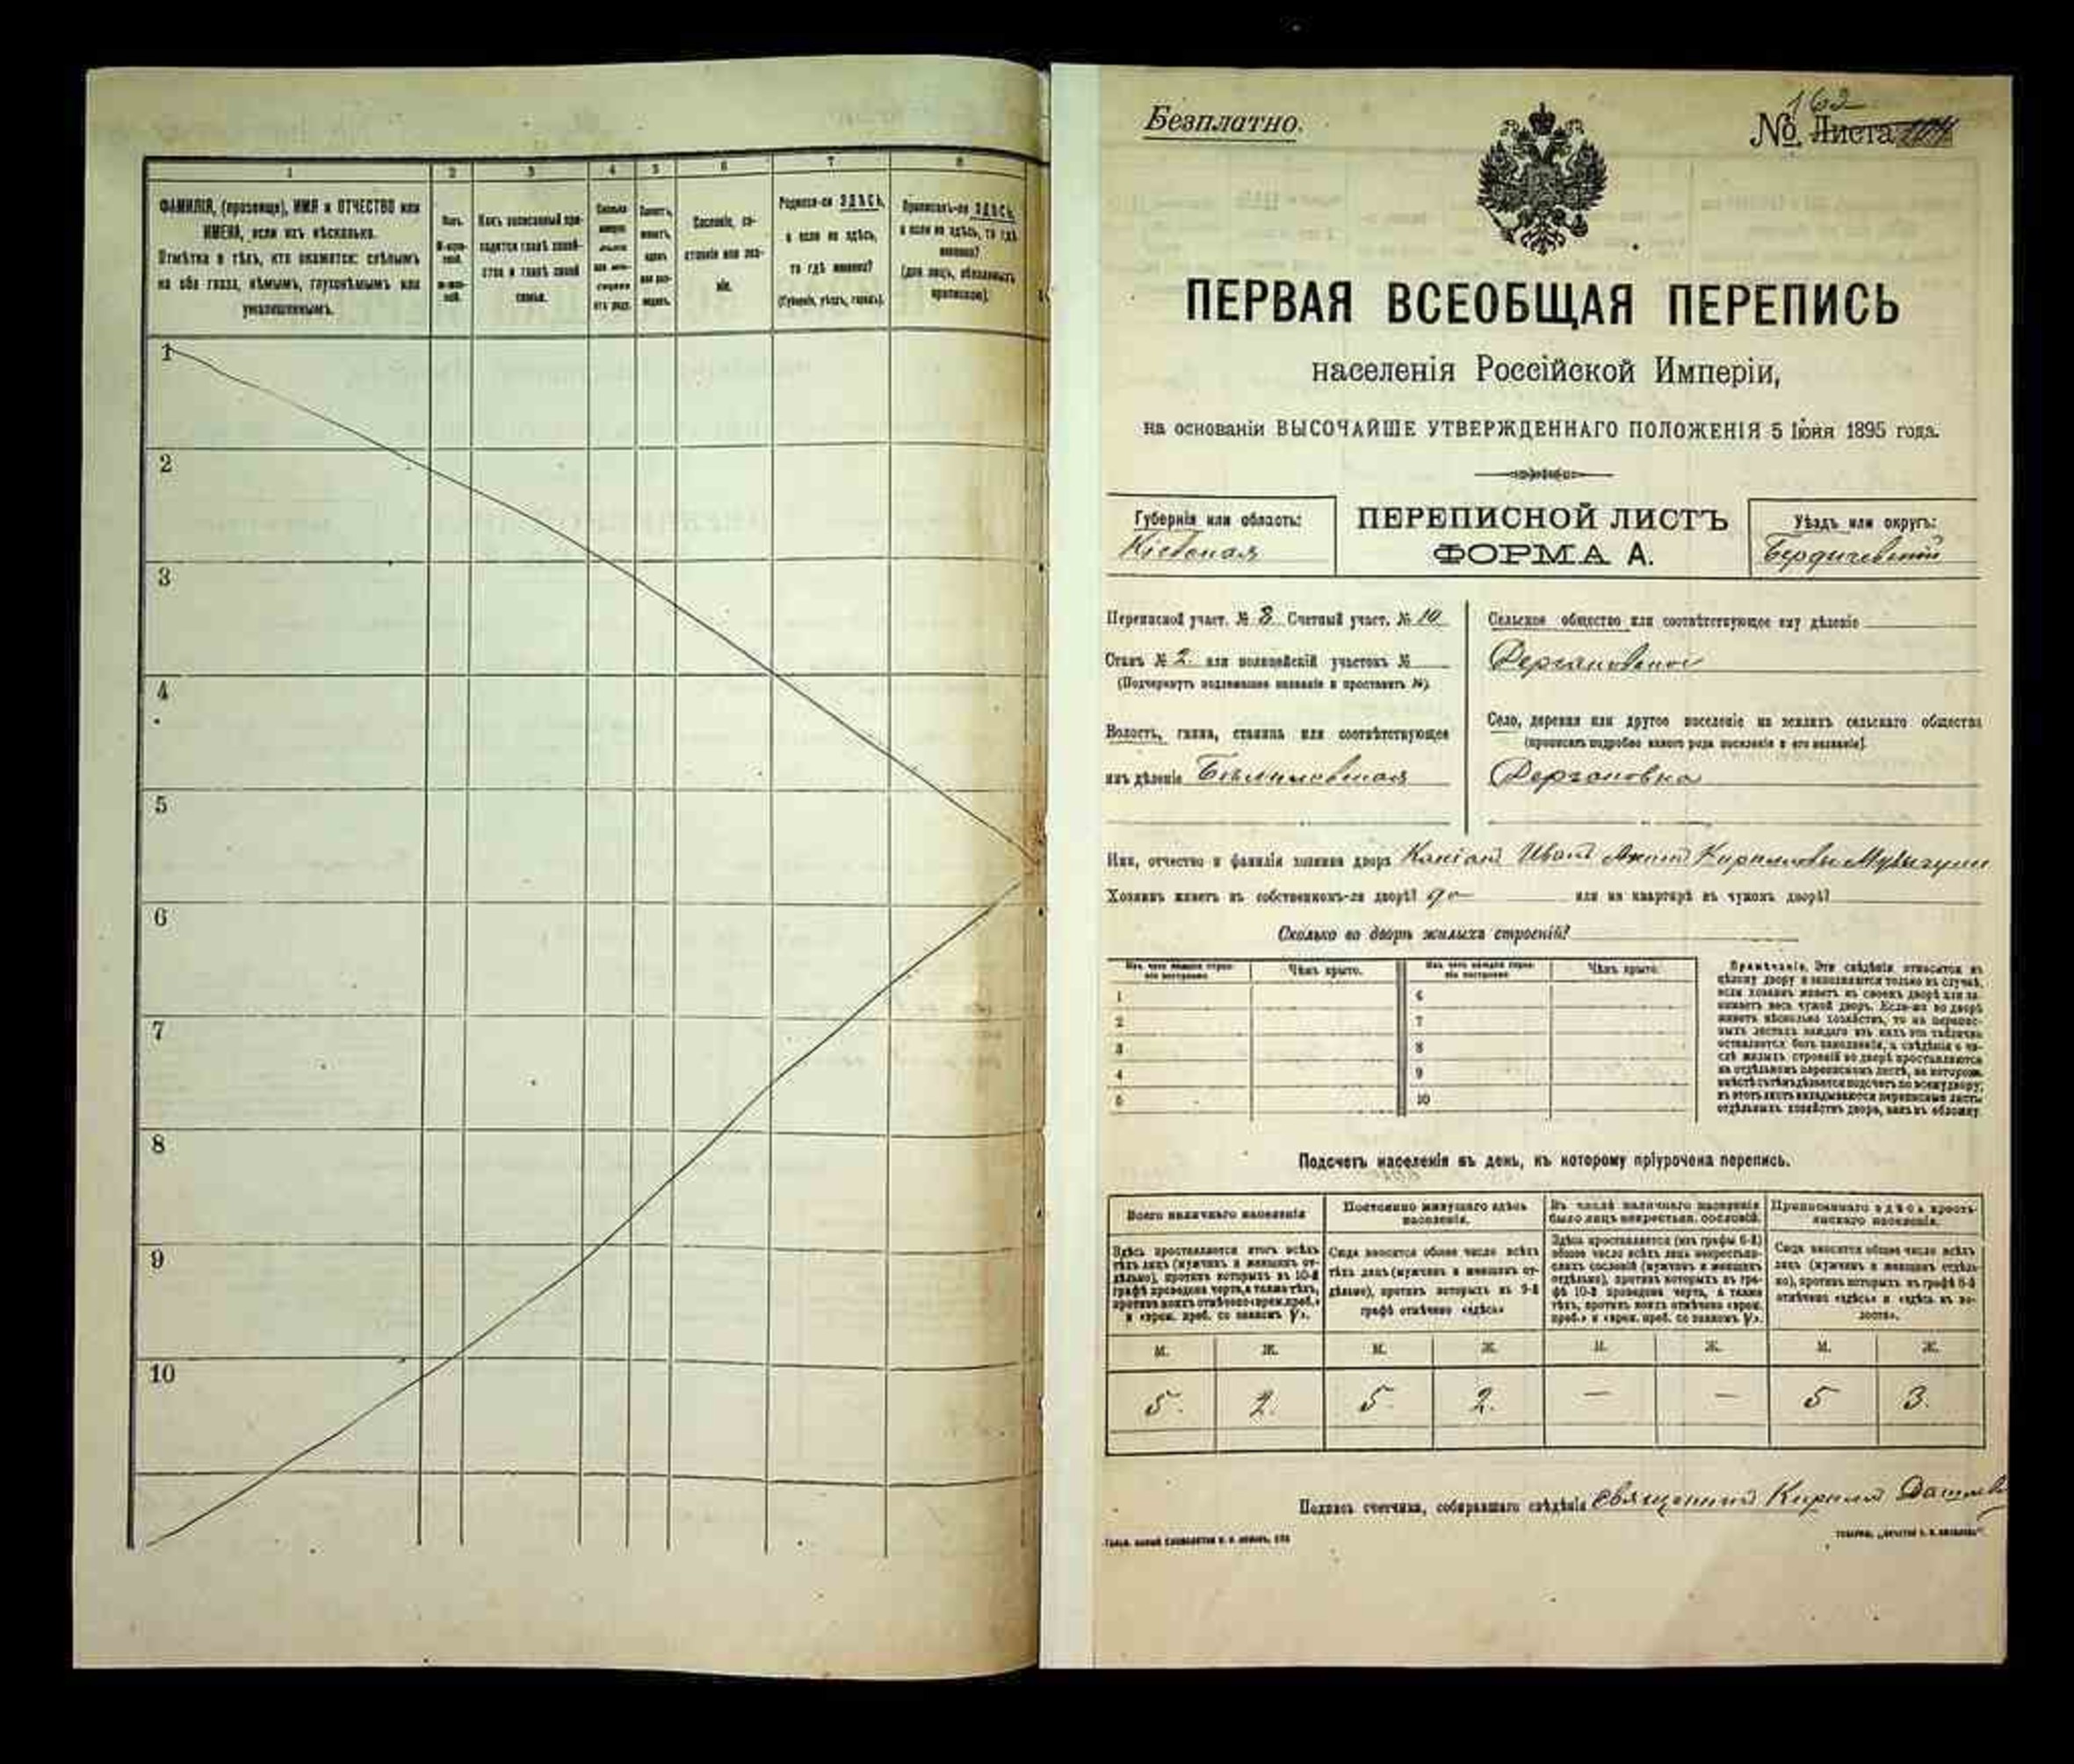 1 2 3 4 5 6 7 8
ФАМИЛІЯ, (прозвище), ИМЯ и ОТЧЕСТВО или
ИМЕНА, если ихъ нѣсколько.
Отмѣтка о тѣхъ, кто окажется: слѣпымъ
на оба глаза, нѣмымъ, глухонѣмымъ или
умалишеннымъ.
Полъ.
М-муж-
ской.
Ж-жен-
скій.
Какъ записанный при-
ходится главѣ хозяй-
ства и главѣ своей
семьи.
Сколько
минуло
лѣтъ
или мѣ-
сяцевъ
отъ роду.
Холостъ,
женатъ,
вдовъ
или раз-
веденъ.
Сословіе, со-
стояніе или зва-
ніе.
Родился-ли ЗДѢСЬ,
а если не здѣсь,
то гдѣ именно?
(Губернія, уѣздъ, городъ).
Приписанъ-ли ЗДѢСЬ,
а если не здѣсь, то гдѣ
именно?
(для лицъ, обязанныхъ
припискою).
1
2
3
4
5
6
7
8
9
10
Безплатно.
162
№ Листа
ПЕРВАЯ ВСЕОБЩАЯ ПЕРЕПИСЬ
населенія Россійской Имперіи,
на основаніи ВЫСОЧАЙШЕ УТВЕРЖДЕННАГО ПОЛОЖЕНІЯ 5 Іюня 1895 года.
Губернія или область:
Кіевская
ПЕРЕПИСНОЙ ЛИСТЪ
ФОРМА А.
Уѣздъ или округъ:
Бердичевскій
Переписной участ. № 3 Счетный участ. № 10
Станъ № 2 или полицейскій участокъ №
(Подчеркнуть подлежащее названіе и проставить №).
Волость, гмина, станица или соотвѣтствующее
имъ дѣленіе Бѣлиловская
Сельское общество или соотвѣтствующее ему дѣленіе
Дергановское
Село, деревня или другое поселеніе на земляхъ сельскаго общества
(прописать подробно какого рода поселеніе и его названіе).
Дергановка
Имя, отчество и фамилія хозяина двора Иванъ
Хозяинъ живетъ въ собственномъ-ли дворѣ? да или на квартирѣ въ чужомъ дворѣ?
Сколько во дворѣ жилыхъ строеній?
Изъ чего каждое строе-
ніе построено Чѣмъ крыто. Изъ чего каждое строе-
ніе построено Чѣмъ крыто.
1 6
2 7
3 8
4 9
5 10
Примѣчаніе. Эти свѣдѣнія относятся къ
цѣлому двору и заполняются только въ случаѣ,
если хозяинъ живетъ въ своемъ дворѣ или за-
нимаетъ весь чужой дворъ. Если-же во дворѣ
живетъ нѣсколько хозяйствъ, то на перепис-
ныхъ листахъ каждаго изъ нихъ эта табличка
оставляется безъ заполненія, а свѣдѣнія о чи-
слѣ жилыхъ строеній во дворѣ проставляются
на отдѣльномъ переписномъ листѣ, на которомъ
вмѣстѣ съ тѣмъ дѣлается подсчетъ по всему двору;
въ этотъ листъ вкладываются переписные листы
отдѣльныхъ хозяйствъ двора, какъ въ обложку.
Подсчетъ населенія въ день, къ которому пріурочена перепись.
Всего наличнаго населенія
Здѣсь проставляется итогъ всѣхъ
тѣхъ лицъ (мужчинъ и женщинъ от-
дѣльно), противъ которыхъ въ 10-й
графѣ проведена черта, а также тѣхъ,
противъ коихъ отмѣчено «врем. преб.»
и «врем. преб. со знакомъ V».
Постоянно живущаго здѣсь
населенія.
Сюда вносится общее число всѣхъ
тѣхъ лицъ (мужчинъ и женщинъ от-
дѣльно), противъ которыхъ въ 9-й
графѣ отмѣчено «здѣсь»
Въ числѣ наличнаго населенія
было лицъ некрестьян. сословій.
Здѣсь проставляется (изъ графы 6-й)
общее число всѣхъ лицъ некрестьян-
скихъ сословій (мужчинъ и женщинъ
отдѣльно), противъ которыхъ въ гра-
фѣ 10-й проведена черта, а также
тѣхъ, противъ коихъ отмѣчено «врем.
преб.» и «врем. преб. со знакомъ V».
Приписаннаго здѣсь кресть-
янскаго населенія.
Сюда вносится общее число всѣхъ
лицъ (мужчинъ и женщинъ отдѣль-
но), противъ которыхъ въ графѣ 8-й
отмѣчено «здѣсь» и «здѣсь въ во-
лости».
М. Ж. М. Ж. М. Ж. М. Ж.
5. 2. 5. 2. — — 5 3.
Подпись счетчика, собиравшаго свѣдѣнія Священникъ Кириллъ